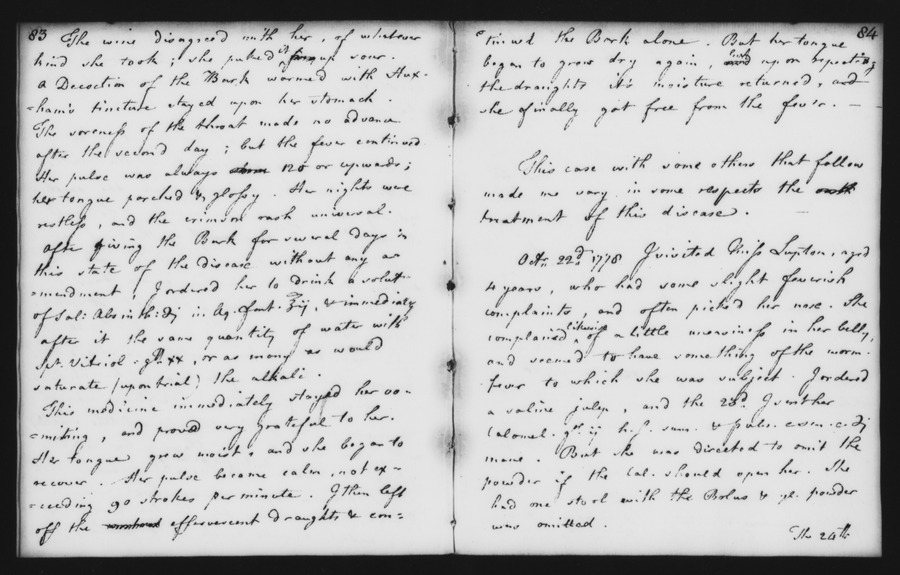 83
The wine disagreed with her, of whatever
kind she took; she puked it up sour.
A Decoction of the Bark warmed with Hux-
=ham's tincture stayed upon her stomach.
The soreness of the throat made no advance
after the second day; but the fever continued
Her pulse was always 120 or upwards;
her tongue parched & glossy. Her nights were
restless, and the crimson rash universal.
After giving the Bark for several days in
this state of the disease without any a=
=mendment, I ordered her to drink a soluti-
of Sal: Absinth: ʒj in Aq. font. ℥ij, & immediately
after it the same quantity of water with
Spt. Vitriol. gtt xx, or as many as would
saturate (upon trial) the alkali.
This medicine immediately stayed her vo=
=miting, and proved very grateful to her.
Her tongue grew moist & and she began to
recover. Her pulse became calm, not ex=
=ceeding 90 strokes per minute. I then left
off the effervescent draughts & con=
84
tinued the Bark alone. But her tongue
began to grow dry again, but upon repeating
the draughts it's moisture returned, and
she finally got free from the fever. —
This case with some others that follow
made me vary in some respects the
treatment of this disease. —
Octr. 22d. 1778 I visited Miss Lupton, aged
4 years, who had some slight feverish
complaints, and often picked her nose. She
complained likewise of a little uneasiness in her belly,
and seemed to have something of the worm-
fever to which she was subject. I ordered
a saline julep, and the 23d. I sent her
Calomel. gr. ij h.s. sum. & pulv. ʒj
mane. But she was directed to omit the
powder if the Cal. should open her. She
had one stool with the Bolus & ye. powder
was omitted.
The 24th